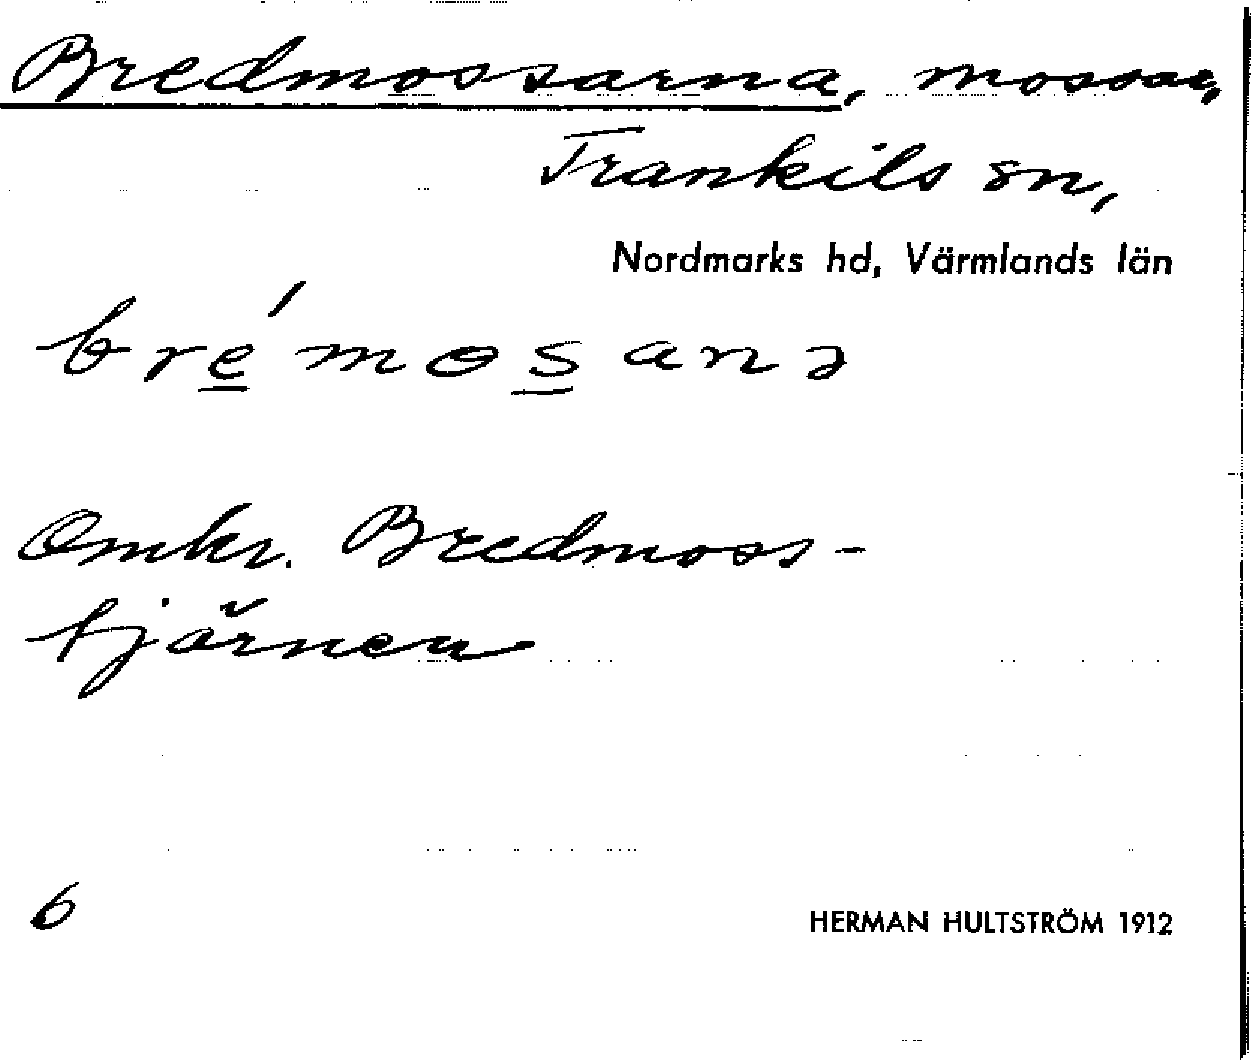 Bredmossarna, mossar,
Trankils sn,
Nordmarks hd, Värmlands län
bre̲´mɵs̲anə
Omkr. Bredmoss-
tjärnen
6
HERMAN HULTSTRÖM 1912